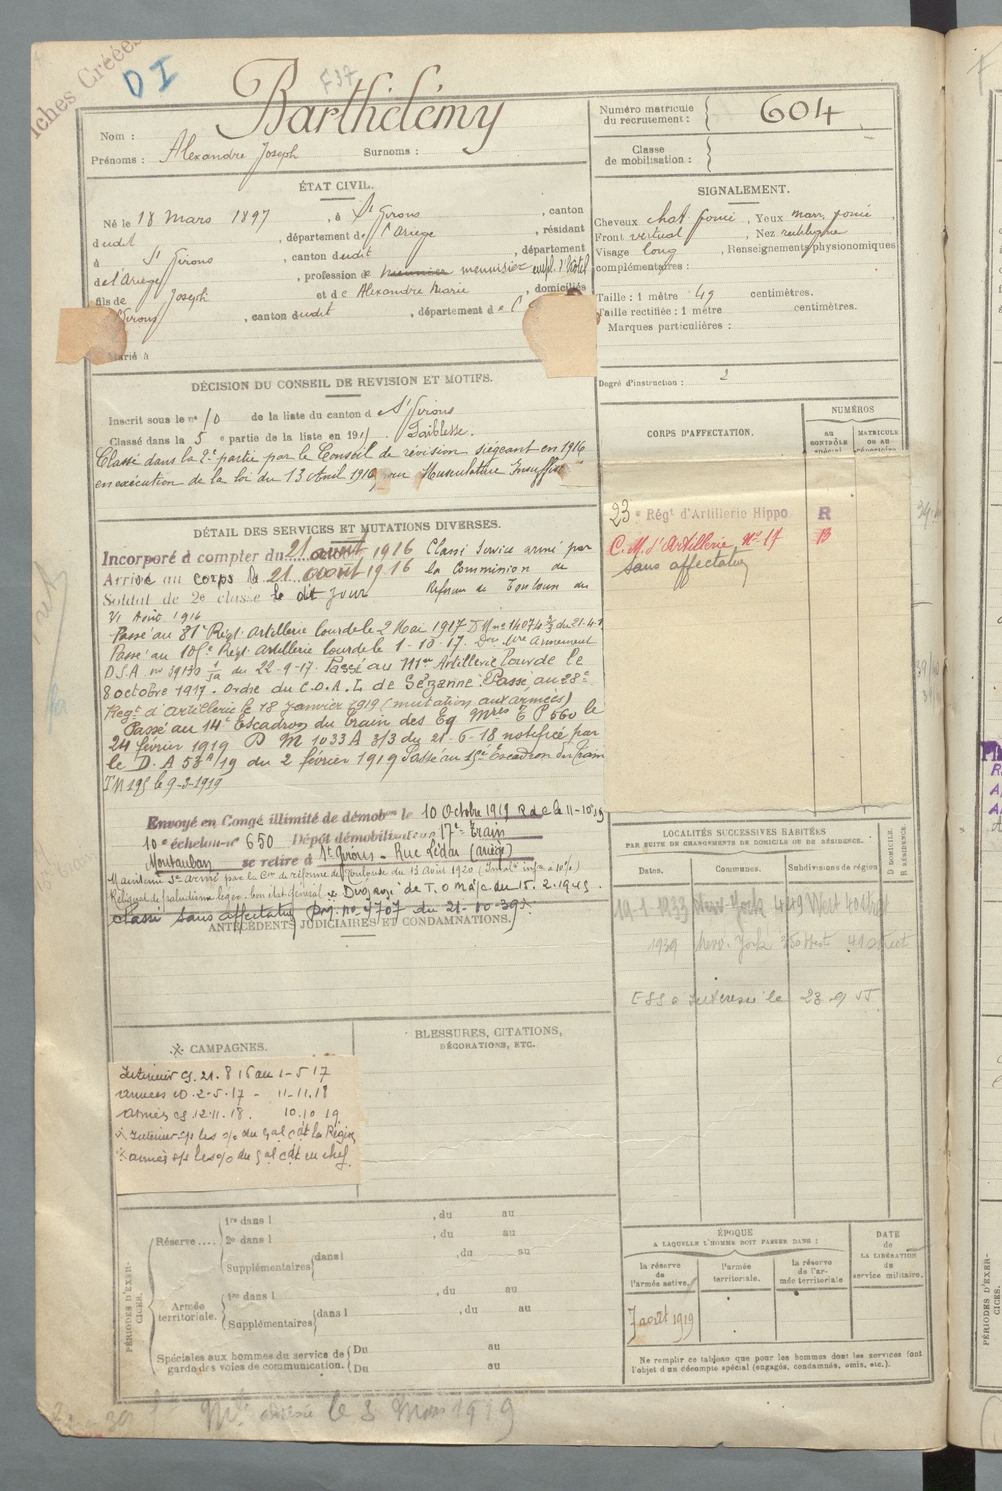 Fiches Créées
DI
F37
Barthélémy
Nom :
Prénoms : Alexandre Joseph Surnoms :
Numéro matricule du recrutement : 604
Classe de mobilisation :
ÉTAT CIVIL.
Né le 18 mars 1897, à St Girons, canton
dudit, département de l'Ariège, résidant
à St Girons, canton dudit, département
de l'Ariège, profession de meunier menuisier empl. d'hôtel
fils de Joseph et de Alexandre Marie, domiciliés
Girons, canton dudit, département de l'
Marié à
SIGNALEMENT.
Cheveux chat. foncé, Yeux marr. foncé,
Front vertical, Nez rectiligne
Visage long, Renseignements physionomiques
complémentaires :
Taille : 1 mètre 49 centimètres.
Taille rectifiée : 1 mètre centimètres.
Marques particulières :
Degré d'instruction : 2
DÉCISION DU CONSEIL DE REVISION ET MOTIFS.
Inscrit sous le n° 10 de la liste du canton de St Girons
Classé dans la 5e partie de la liste en 191 . Faiblesse.
Classé dans la 2e partie par le Conseil de révision siégeant en 1916
en exécution de la loi du 13 Avril 1916 pour Musculature Insuffis
CORPS D'AFFECTATION.
NUMÉROS
au contrôle spécial
matricule ou au répertoire
23e Régt d'Artillerie Hippo R
C.M. d'Artillerie No 17 B
Sans affectation
DÉTAIL DES SERVICES ET MUTATIONS DIVERSES.
Incorporé à compter du 21 août 1916 Classé Service armé par
Arrivé au corps le 21 août 1916 la Commission de
Soldat de 2e classe le dit jour Réforme de Toulouse du
VI Août 1916
Passé au 81e Régt Artillerie lourde le 2 Mai 1917 DM no 14074 3/3 du 21-4-1
Passé au 105e Régt Artillerie lourde le 1-10-17.
D.S.A. no 39130 du 22-9-17. Passé au 111e Artillerie lourde le
8 octobre 1917. Ordre du C.O.A.L de Sézanne. Passé au 28e
Regt d'Artillerie le 18 Janvier 1919 (mutation aux armées)
Passé au 14e Escadron du train des Eq Mres E P 560 le
24 février 1919 D M 1033 A 3/3 du 21-6-18 notifiée par
le D.A 53 /19 du 2 février 1919 Passé au 15e Escadron du train
le 9-3-1919
Envoyé en Congé illimité de démobon le 10 Octobre 1919 R d C le 11-10-19
10e échelon - n° 650 Dépôt démobilisateur 17e Train
Montauban se retire à St Girons - Rue Lédar (Ariège)
Maintenu Sce armé par la Con de réforme de Toulouse du 13 Août 1920
Reliquat de paludisme léger. bon état général
Classé sans affectation prog. no 4707 du 21-10-39
ANTÉCÉDENTS JUDICIAIRES ET CONDAMNATIONS.
LOCALITÉS SUCCESSIVES HABITÉES
PAR SUITE DE CHANGEMENTS DE DOMICILE OU DE RÉSIDENCE.
Dates. Communes. Subdivisions de région
D DOMICILE.
R RÉSIDENCE.
19-1-1933 New-York 449 West 40 Street
1939 New-York 350 West 41 Street
CAMPAGNES.
Intérieur CS. 21.8.16 au 1-5-17
armées CD. 2.5.17 - 11-11.18
armées CS 12.11.18. 10.10.19
BLESSURES, CITATIONS,
DÉCORATIONS, ETC.
PÉRIODES D'EXERCICES.
Réserve....
1re dans l , du au
2e dans l , du au
Supplémentaires dans l , du au
Armée territoriale.
1re dans l , du au
Supplémentaires dans l , du au
Spéciales aux hommes du service de garde des voies de communication.
Du au
Du au
ÉPOQUE
A LAQUELLE L'HOMME DOIT PASSER DANS :
la réserve de l'armée active.
l'armée territoriale.
la réserve de l'armée territoriale
DATE de LA LIBÉRATION du service militaire.
7 août 1919
Ne remplir ce tableau que pour les hommes dont les services font
l'objet d'un décompte spécial (engagés, condamnés, omis, etc.).
le 3 Mars 1919
PÉRIODES D'EXERCICES.